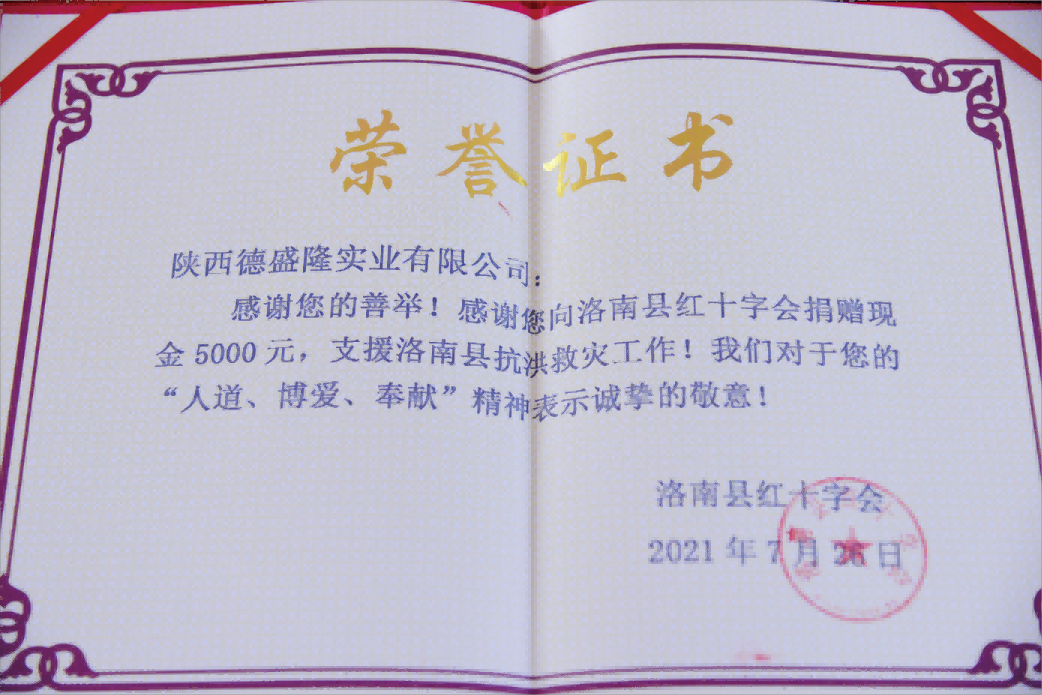 荣誉证书
陕西德盛隆实业有限公司：
感谢您的善举！感谢您向洛南县红十字会捐赠现
金5000元，支援洛南县抗洪救灾工作！我们对于您的
“人道、博爱、奉献”精神表示诚挚的敬意！
洛南县红十字会
2021年7月26日